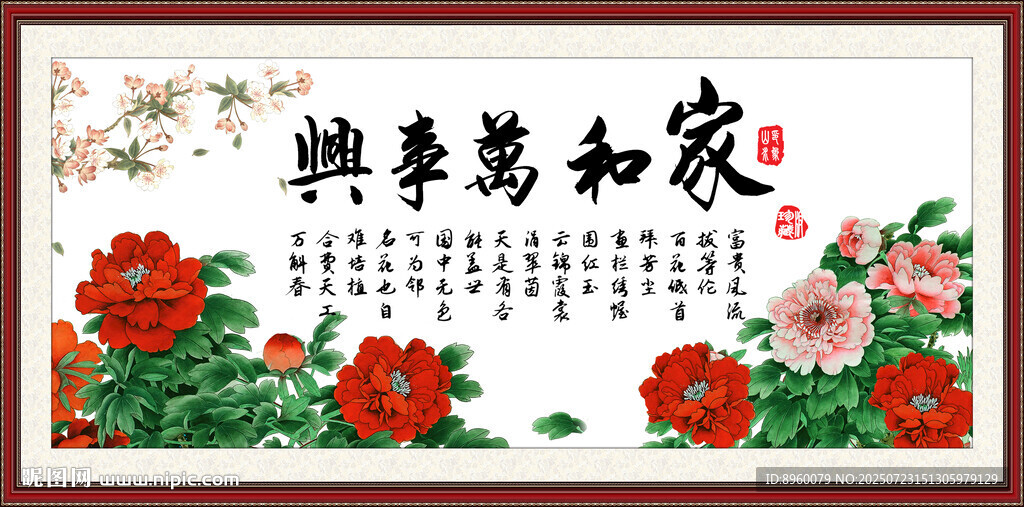 家和萬事興
富贵风流
拔等伦
百花低首
拜芳尘
画栏绣幄
围红玉
云锦霞裳
涓翠茵
天是有各
能盖世
国中无色
可为邻
名花也自
难培植
合费天工
万斛春
珍藏
昵图网 www.nipic.com
ID:8960079 NO:20250723151305979129